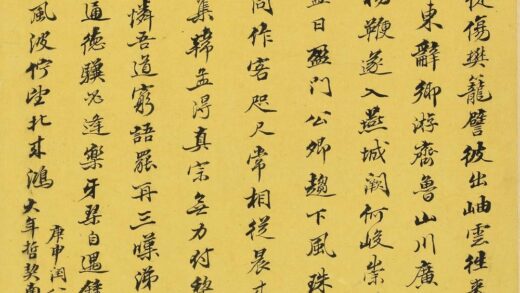 傷樊籠譬彼出岫雲往來
東辭鄉游齊魯山川廣
鞭遂入燕城闕何峻崇
日盈門公卿趨下風珠
同作客咫尺常相從晨
集韓孟得真宗無力
憐吾道窮語罷再三嘆涕
通德驥必逢樂牙琴自遇鍾
風波佇望北來鴻
庚申閏
大年哲契南